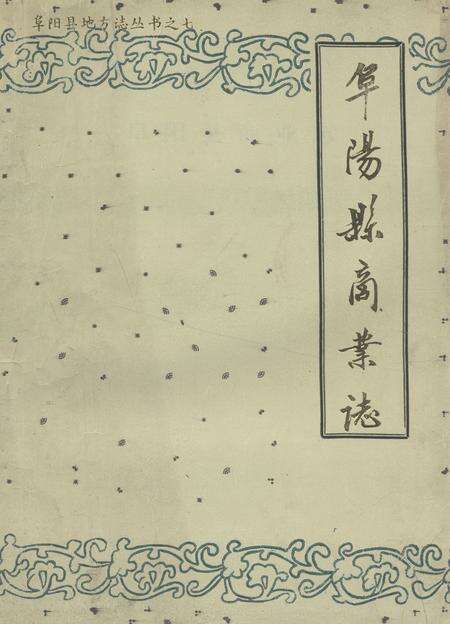 阜阳县地方志丛书之七
阜陽縣商業誌